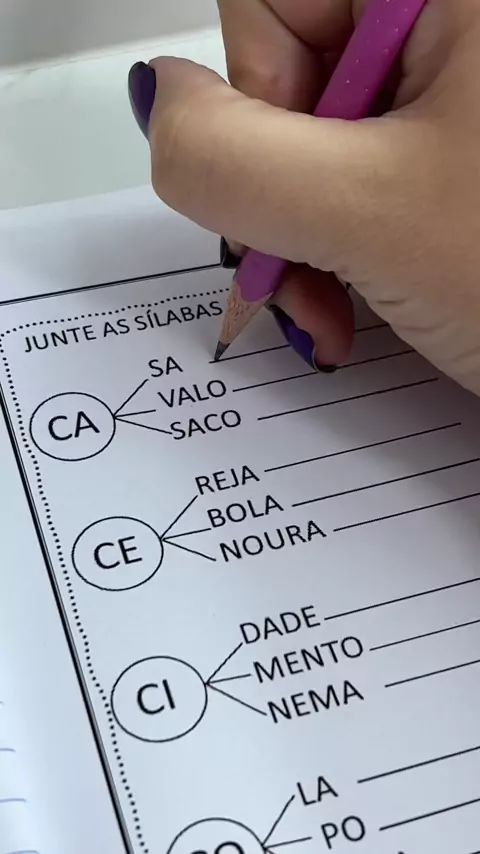 JUNTE AS SÍLABAS
SA
CA
VALO
SACO
REJA
CE
BOLA
NOURA
DADE
CI
MENTO
NEMA
LA
PO